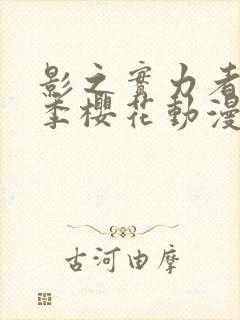 影之實力者
季櫻花動漫
古河由摩